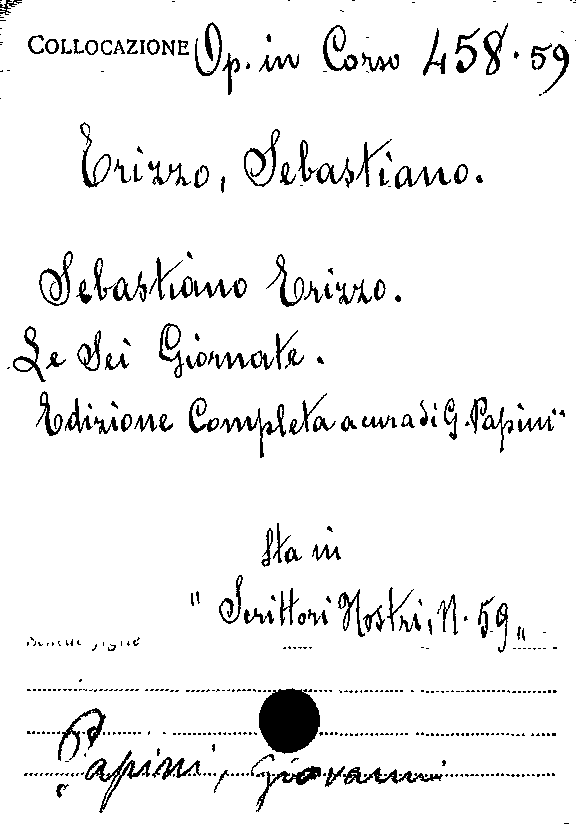 COLLOCAZIONE Op. in Corso 458.59
Erizzo, Sebastiano.
Sebastiano Erizzo.
Le Sei Giornate.
Edizione Completa a cura di G. Papini"
Sta in
"Scrittori Nostri, N. 59"
Papini, Giovanni